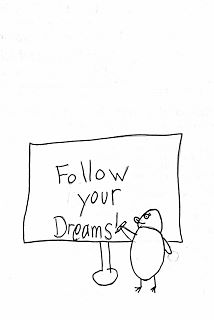 Follow
your
Dreams!